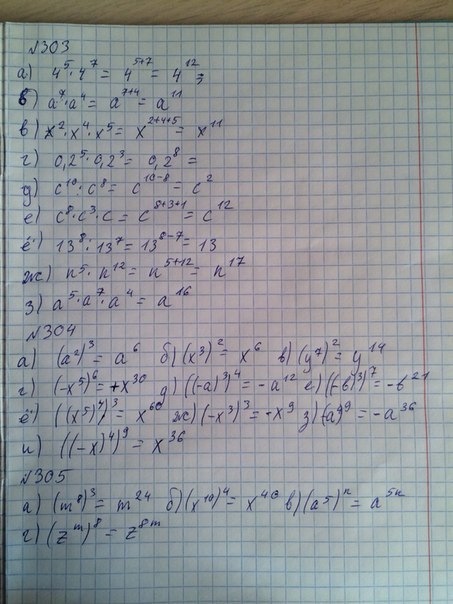 №303
а) 4⁵·4⁷ = 4⁵⁺⁷ = 4¹²
б) a⁷·a⁴ = a⁷⁺⁴ = a¹¹
в) x²·x⁴·x⁵ = x²⁺⁴⁺⁵ = x¹¹
г) 0,2⁵·0,2³ = 0,2⁸ =
д) c¹⁰ : c⁸ = c¹⁰⁻⁸ = c²
е) c⁸·c³·c = c⁸⁺³⁺¹ = c¹²
ё) 13⁸ : 13⁷ = 13⁸⁻⁷ = 13
ж) n⁵·n¹² = n⁵⁺¹² = n¹⁷
з) a⁵·a⁷·a⁴ = a¹⁶
№304
а) (a²)³ = a⁶ б) (x³)² = x⁶ в) (y⁷)² = y¹⁴
г) (-x⁵)⁶ = +x³⁰ д) ((-a)³)⁴ = -a¹² е) ((-b)³)⁷ = -b²¹
ё) ((x⁵)⁴)³ = x⁶⁰ ж) (-x³)³ = -x⁹ з) (-a⁴)⁹ = -a³⁶
и) ((-x)⁴)⁹ = x³⁶
№305
а) (m⁸)³ = m²⁴ б) (x¹⁰)⁴ = x⁴⁰ в) (a⁵)ⁿ = a⁵ⁿ
г) (zᵐ)⁸ = z⁸ᵐ